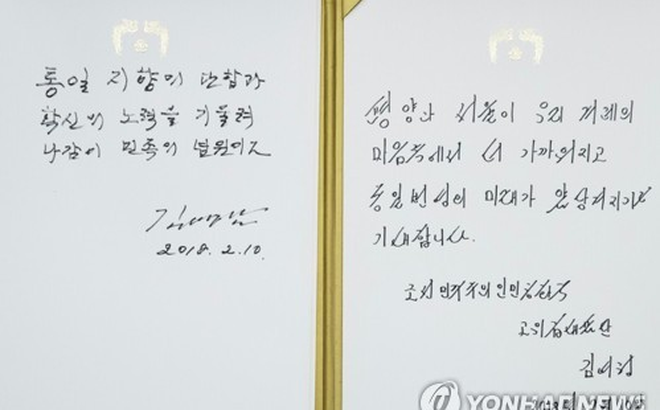 통일 지향의 단합과
확신의 노력을 기울려
나감이 민족의 념원이고
김영남
2018. 2. 10.
평양과 서울이 우리 겨레의
마음속에서 더 가까워지고
통일번영의 미래가 앞당겨지기를
기대합니다.
조선민주주의인민공화국
고위급대표단
김여정
2018년 2월 10일
YONHAPNEWS